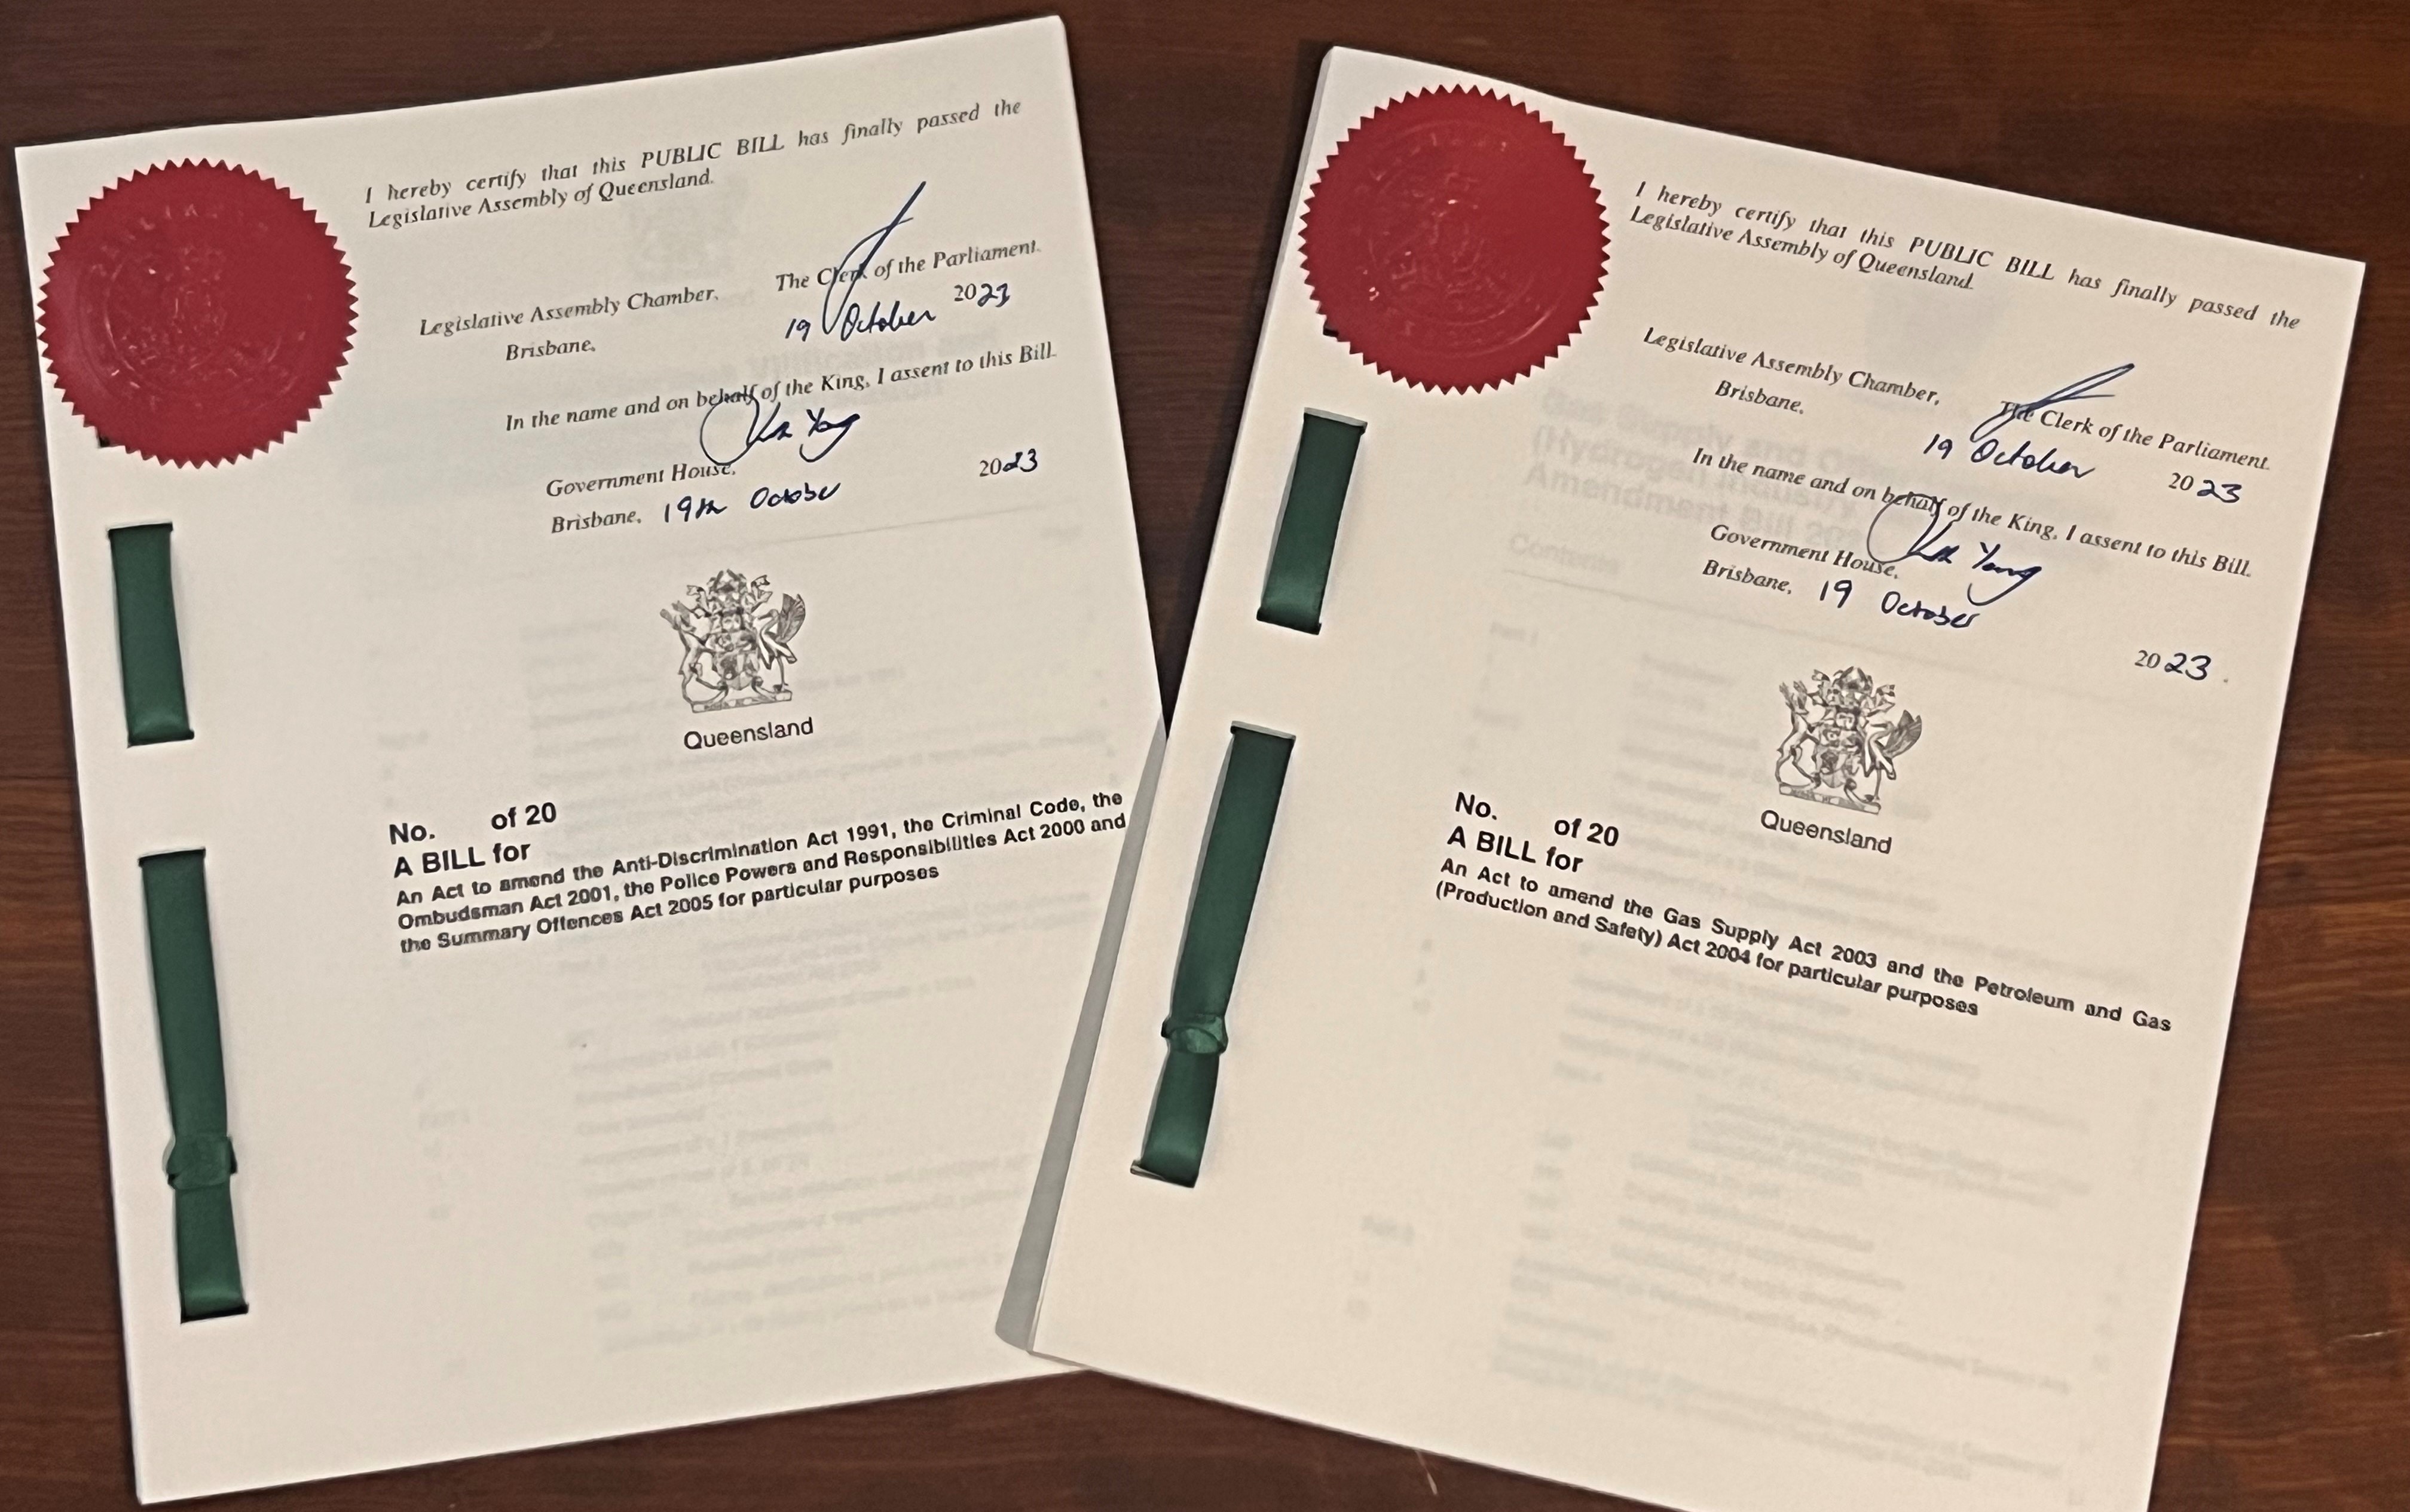 I hereby certify that this PUBLIC BILL has finally passed the
Legislative Assembly of Queensland.
The Clerk of the Parliament.
Legislative Assembly Chamber,
Brisbane,
19 October 2023
In the name and on behalf of the King, I assent to this Bill.
Government House,
Brisbane, 19th October 2023
Queensland
No. of 20
A BILL for
An Act to amend the Anti-Discrimination Act 1991, the Criminal Code, the
Ombudsman Act 2001, the Police Powers and Responsibilities Act 2000 and
the Summary Offences Act 2005 for particular purposes
I hereby certify that this PUBLIC BILL has finally passed the
Legislative Assembly of Queensland.
Legislative Assembly Chamber,
Brisbane,
The Clerk of the Parliament.
19 October 2023
In the name and on behalf of the King, I assent to this Bill.
Government House,
Brisbane, 19 October
2023
Queensland
No. of 20
A BILL for
An Act to amend the Gas Supply Act 2003 and the Petroleum and Gas
(Production and Safety) Act 2004 for particular purposes